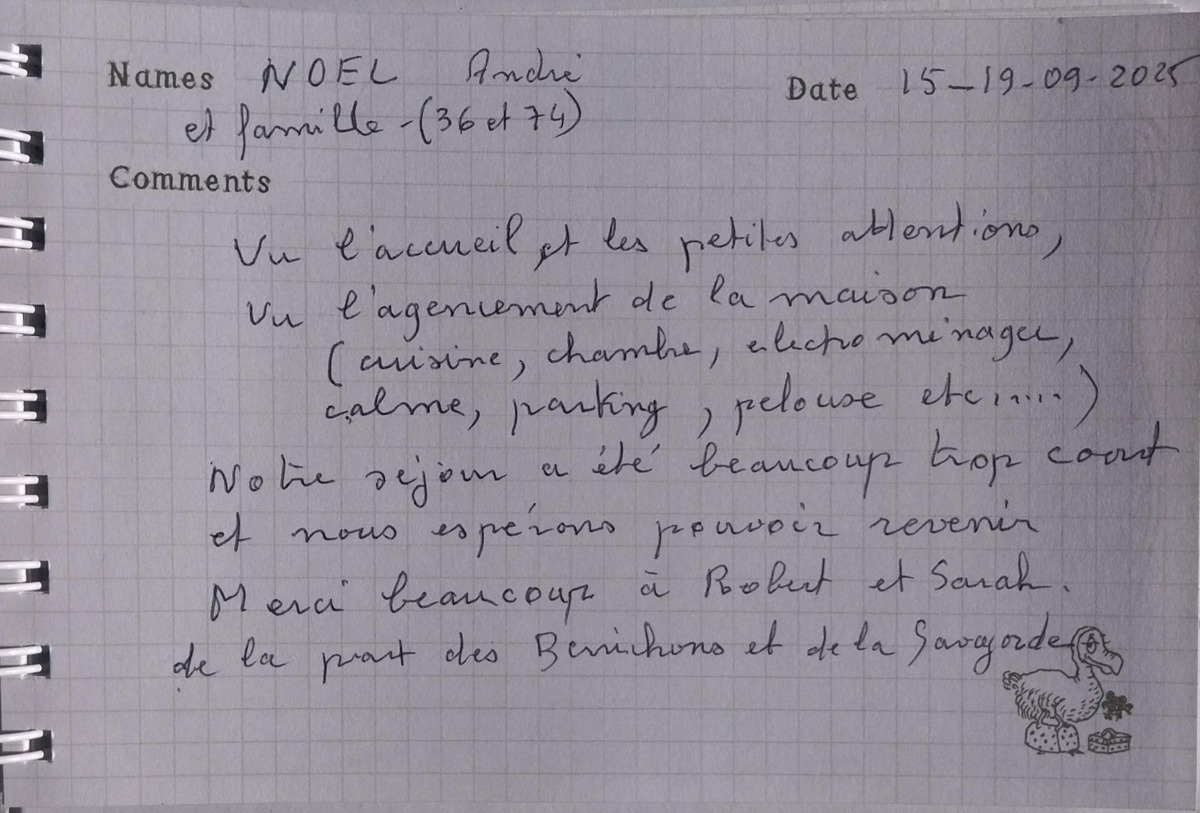 Names NOEL André
Date 15-19-09-2025
et famille - (36 et 74)
Comments
Vu l'accueil et les petites attentions,
Vu l'agencement de la maison
(cuisine, chambre, electroménager,
calme, parking, pelouse etc.....)
Notre séjour a été beaucoup trop court
et nous espérons pouvoir revenir
Merci beaucoup à Robert et Sarah.
de la part des Berrichons et de la Savoyarde